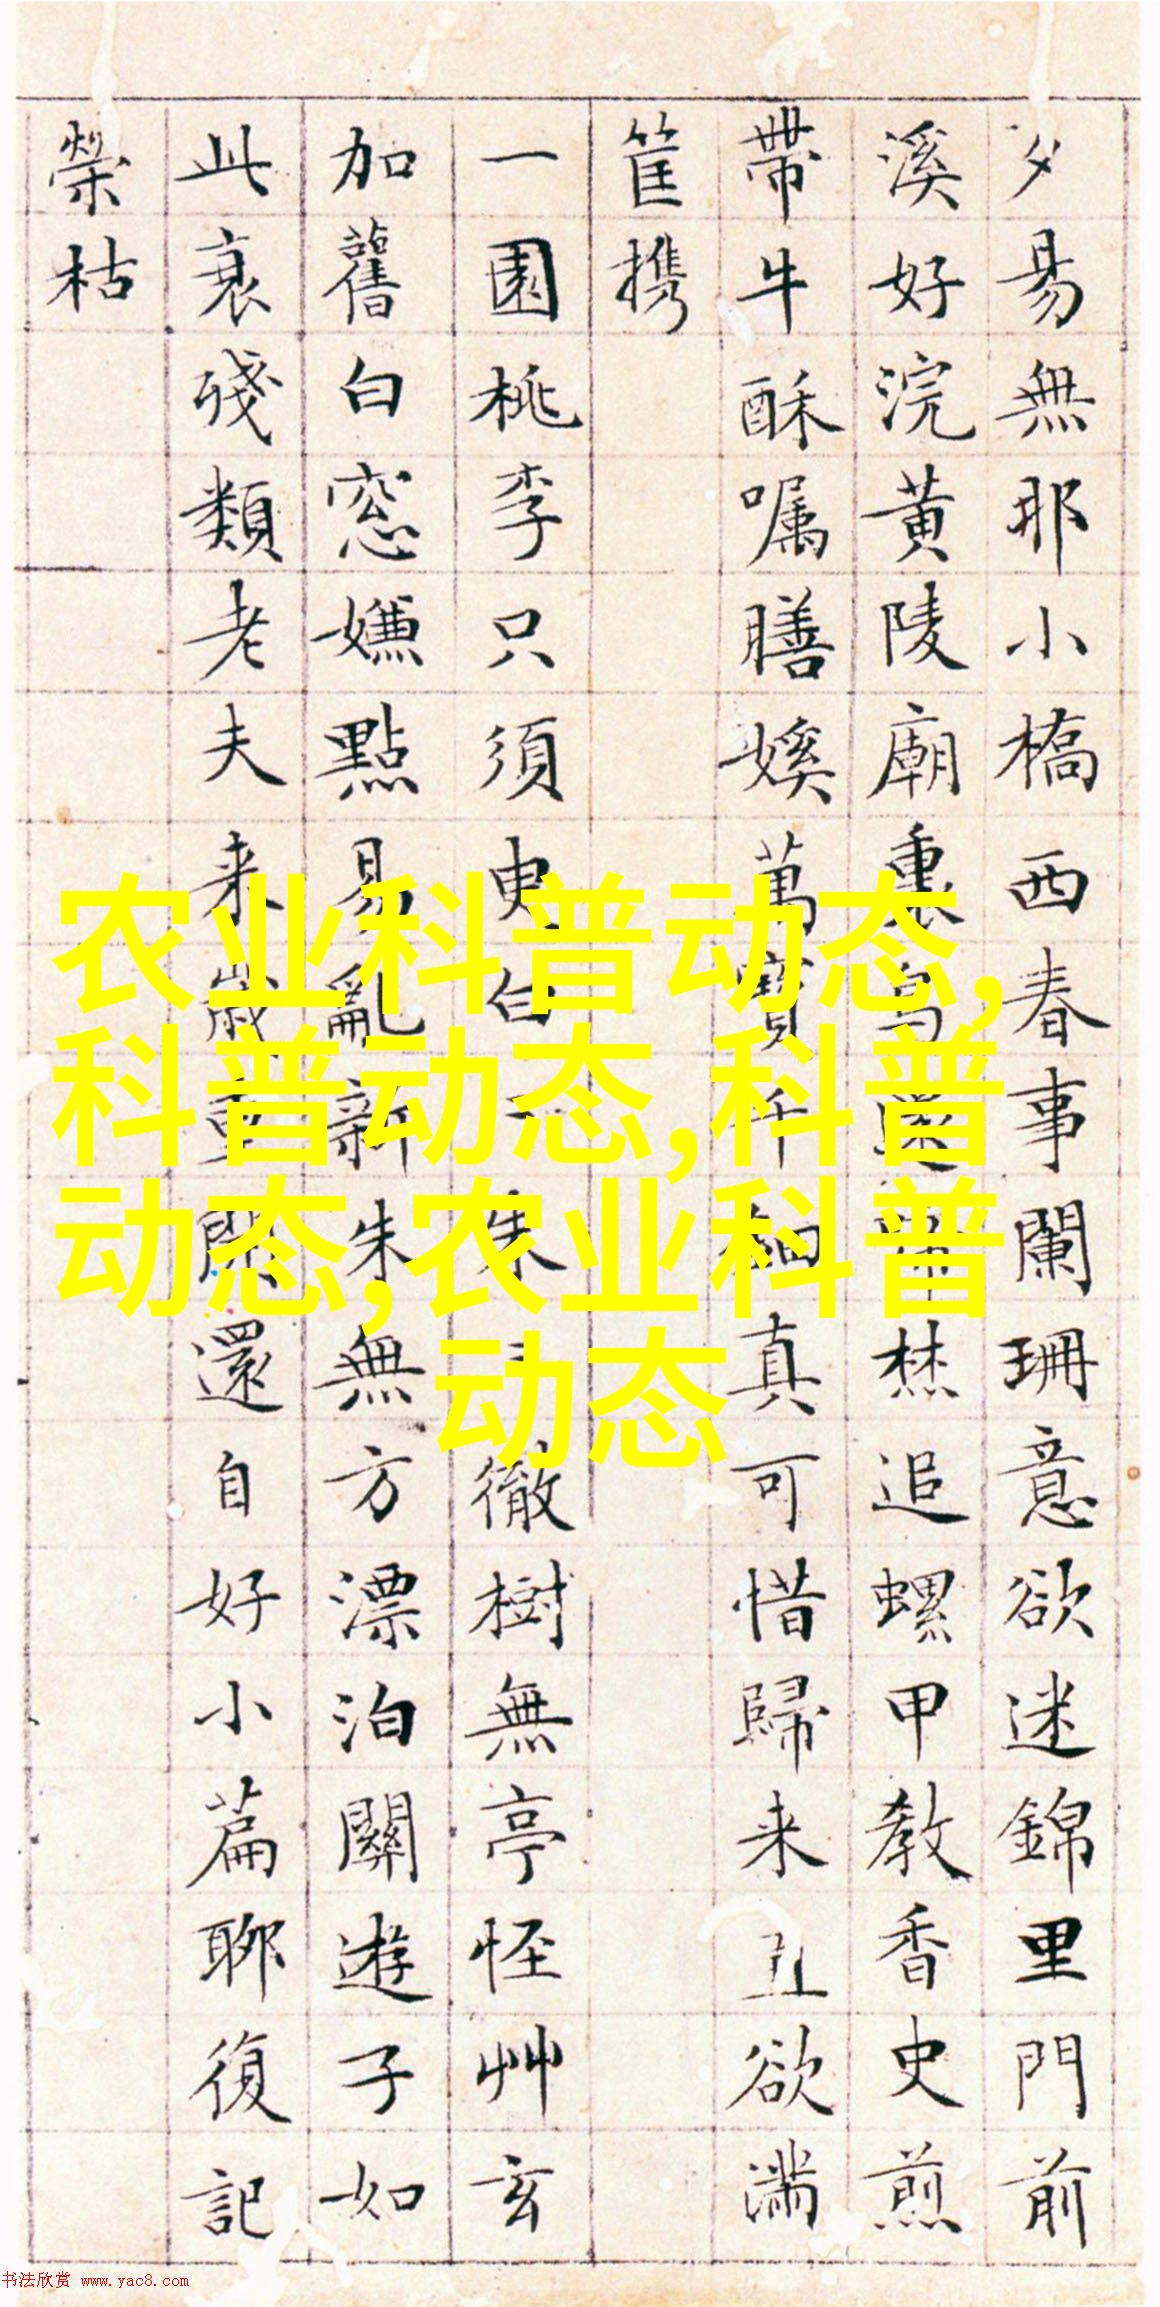 夕易無耶小橋西春事闌珊意欲迷錦里門前
溪好浣黃陵廟裏鳥還啼焚追螺甲教香史煎
帶牛酥嘱膳媛萬寶千鈿真可惜歸来丑欲滿
筐携
一園桃李只須臾白白朱朱徹樹無亭怪艸玄
加舊白窓嫌點易亂新朱無方漂泊關遊子如
此衰殘類老夫来歲重開還自好小篇聊復記
榮枯
农业科普动态,
科普动态,科普
动态,农业科普
动态
书法欣赏 www.yac8.com